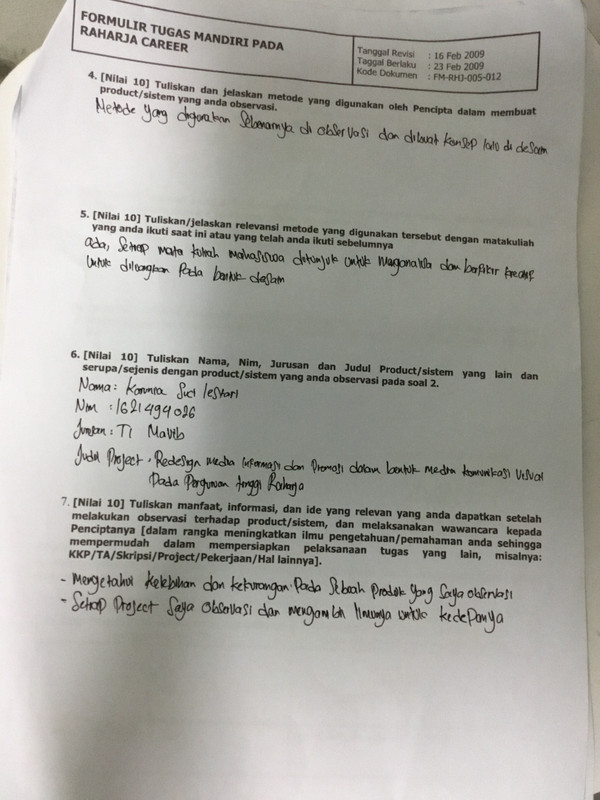 FORMULIR TUGAS MANDIRI PADA
RAHARJA CAREER
Tanggal Revisi : 16 Feb 2009
Taggal Berlaku : 23 Feb 2009
Kode Dokumen : FM-RHJ-005-012
4. [Nilai 10] Tuliskan dan jelaskan metode yang digunakan oleh Pencipta dalam membuat
product/sistem yang anda observasi.
Metode yang digunakan Sebenarnya di observasi dan dibuat konsep lalu di desain
5. [Nilai 10] Tuliskan/jelaskan relevansi metode yang digunakan tersebut dengan matakuliah
yang anda ikuti saat ini atau yang telah anda ikuti sebelumnya
ada, Setiap mata kuliah mahasiswa ditunjuk untuk Menganalisa dan berfikir kreatif
Untuk dituangkan Pada bentuk desain
6. [Nilai 10] Tuliskan Nama, Nim, Jurusan dan Judul Product/sistem yang lain dan
serupa/sejenis dengan product/sistem yang anda observasi pada soal 2.
Nama : Karunia Suci lestari
Nim : 1621494026
Jurusan : TI Mavib
Judul Project : Redesign media informasi dan Promosi dalam bentuk media komunikasi Visual
Pada Perguruan tinggi Raharja
7. [Nilai 10] Tuliskan manfaat, informasi, dan ide yang relevan yang anda dapatkan setelah
melakukan observasi terhadap product/sistem, dan melaksanakan wawancara kepada
Penciptanya [dalam rangka meningkatkan ilmu pengetahuan/pemahaman anda sehingga
mempermudah dalam mempersiapkan pelaksanaan tugas yang lain, misalnya:
KKP/TA/Skripsi/Project/Pekerjaan/Hal lainnya].
- Mengetahui kelebihan dan kekurangan Pada Sebuah Produk yang Saya observasi
- Setiap Project Saya observasi dan mengambil ilmunya untuk kedepanya